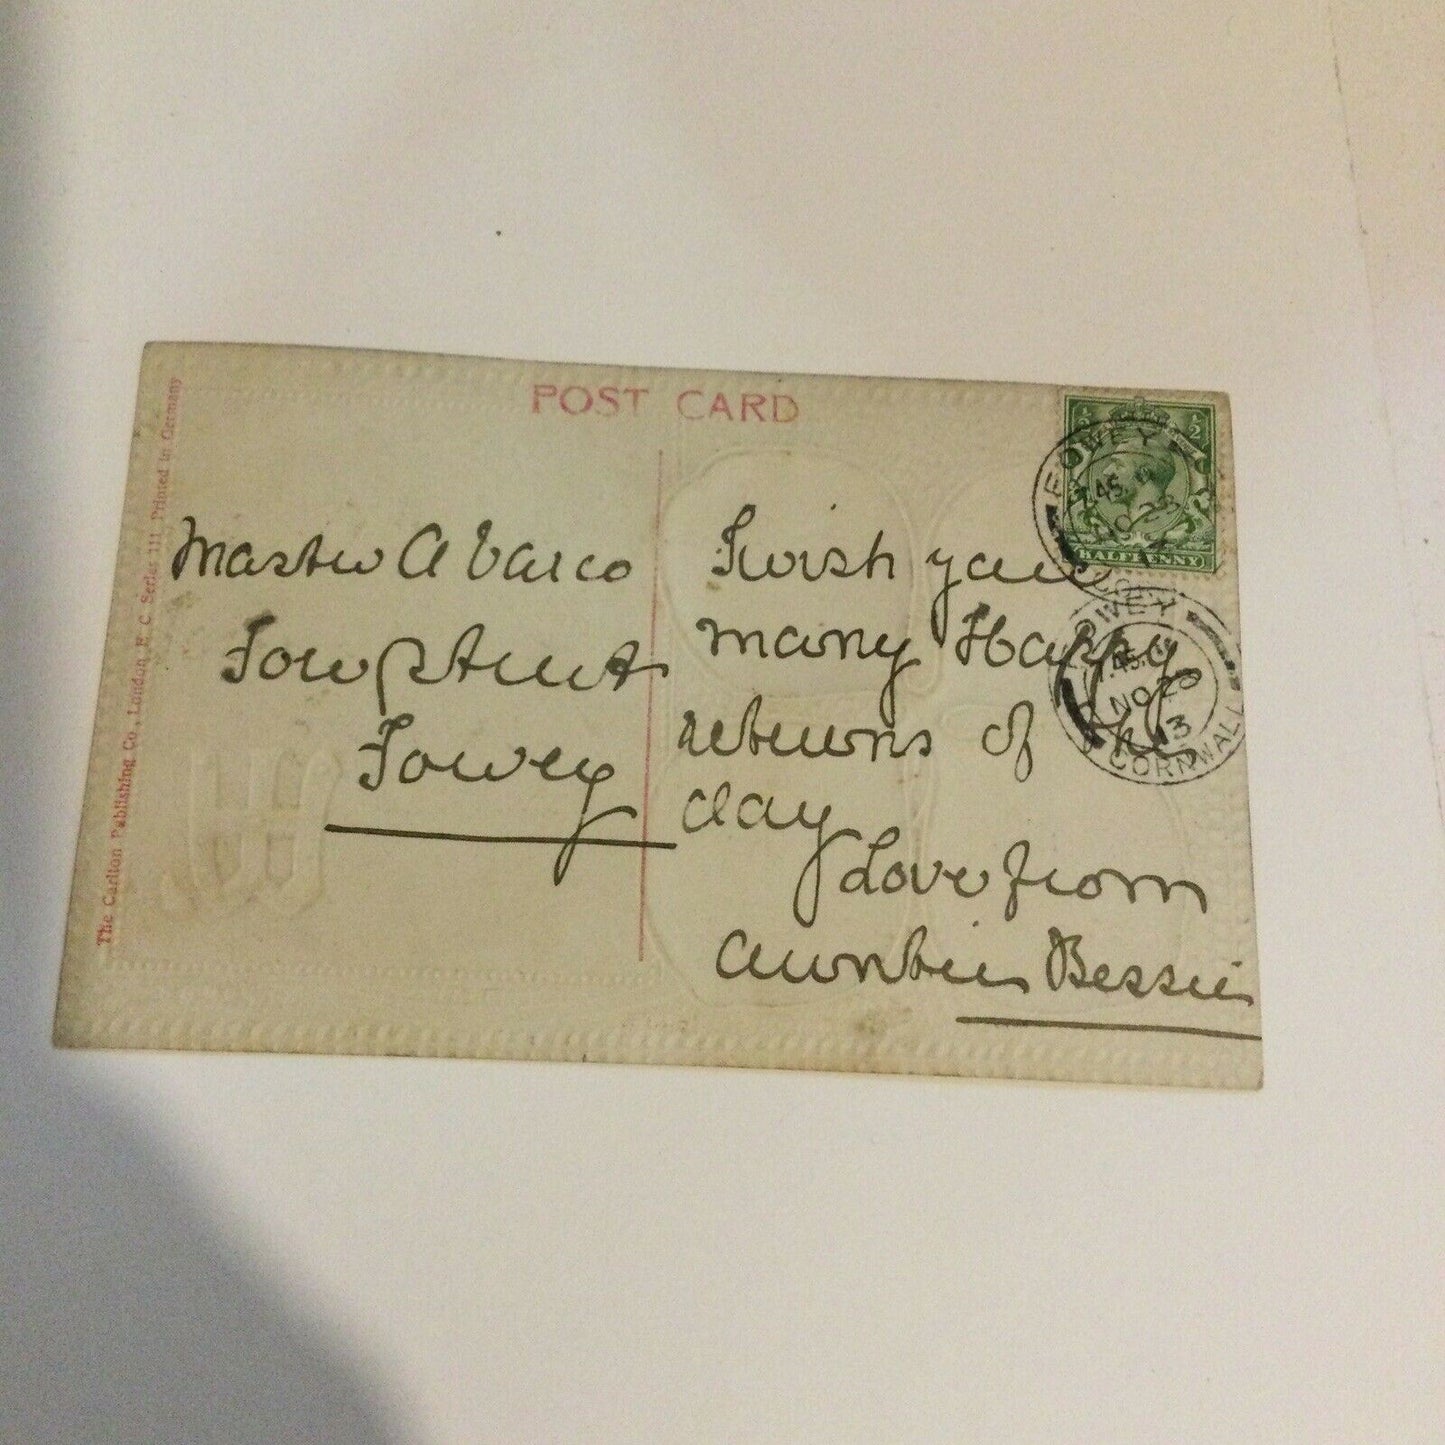 POST CARD
The Carlton Publishing Co., London, E. C. Series 111 Printed in Germany
½ ½
HALFPENNY
FOWEY
.45
NO 28
FOWEY
.45
NO 28
13
CORNWALL
Master A Varco
Fore Street
Fowey
I wish you
many Happy
returns of the
day
Love from
Auntie Bessie